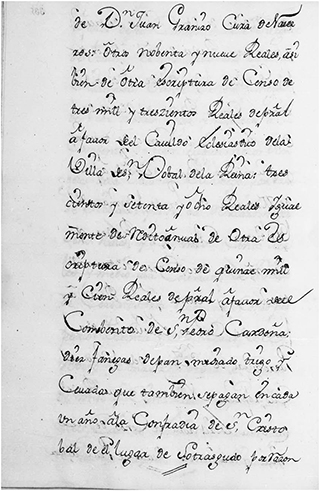 de Dn. Juan Granizo Cura de Nava
ros: Otro nobenta y nueve Reales, asi
bien de Otra escriptura de Censo de
tres mill y trescientos Reales de pral
a favor del Cavildo Eclesiastico de la
Villa de Sn.
cientos y setenta y ocho Reales Igual
mente de Redito annual de Otra es
criptura de Censo de quince mill
y Cien Reales de pral a favor del
Combento de Sn. Pedro Cardeña:
diez fanegas de pan mediado trigo y
Cevada que tambien se pagan en cada
un año a la Confradia de Sn. Cristo
bal de el lugar de Sotragudo por razon